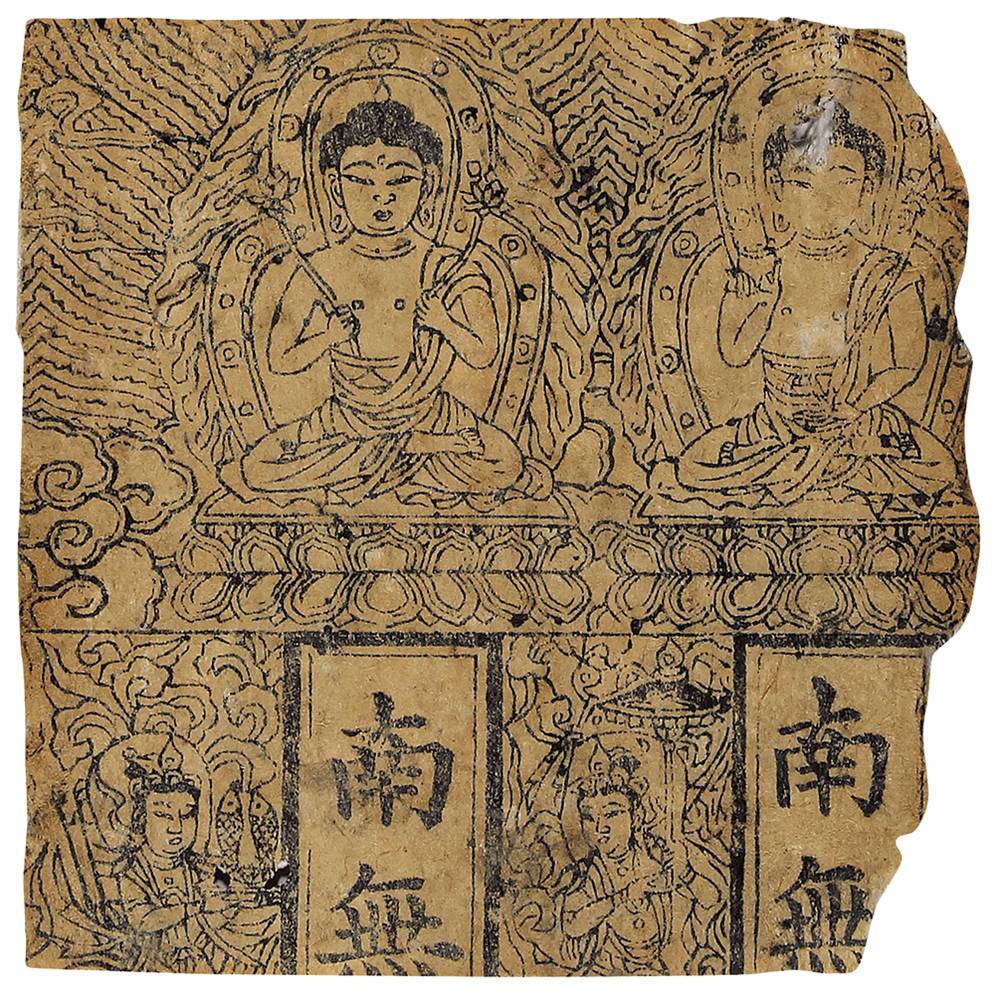 南無
南無